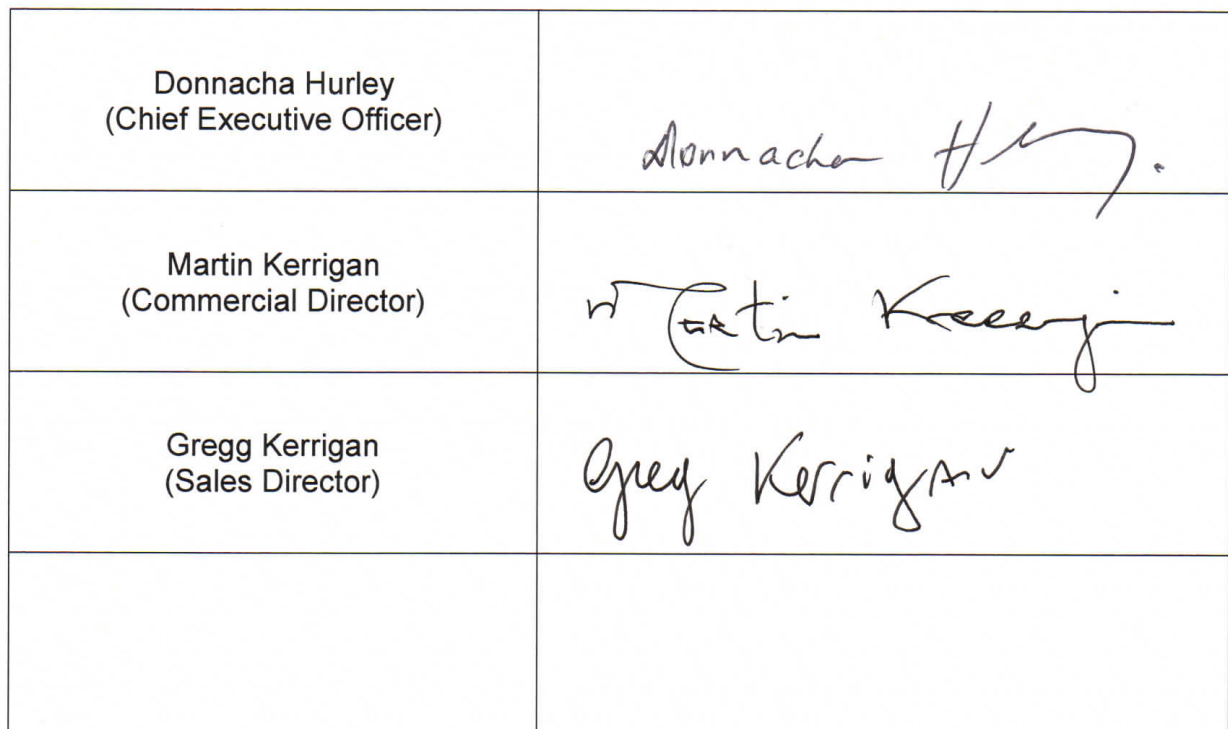 Donnacha Hurley
(Chief Executive Officer)
Donnacha H
Martin Kerrigan
(Commercial Director)
Martin Kerrigan
Gregg Kerrigan
(Sales Director)
Greg Kerrigan